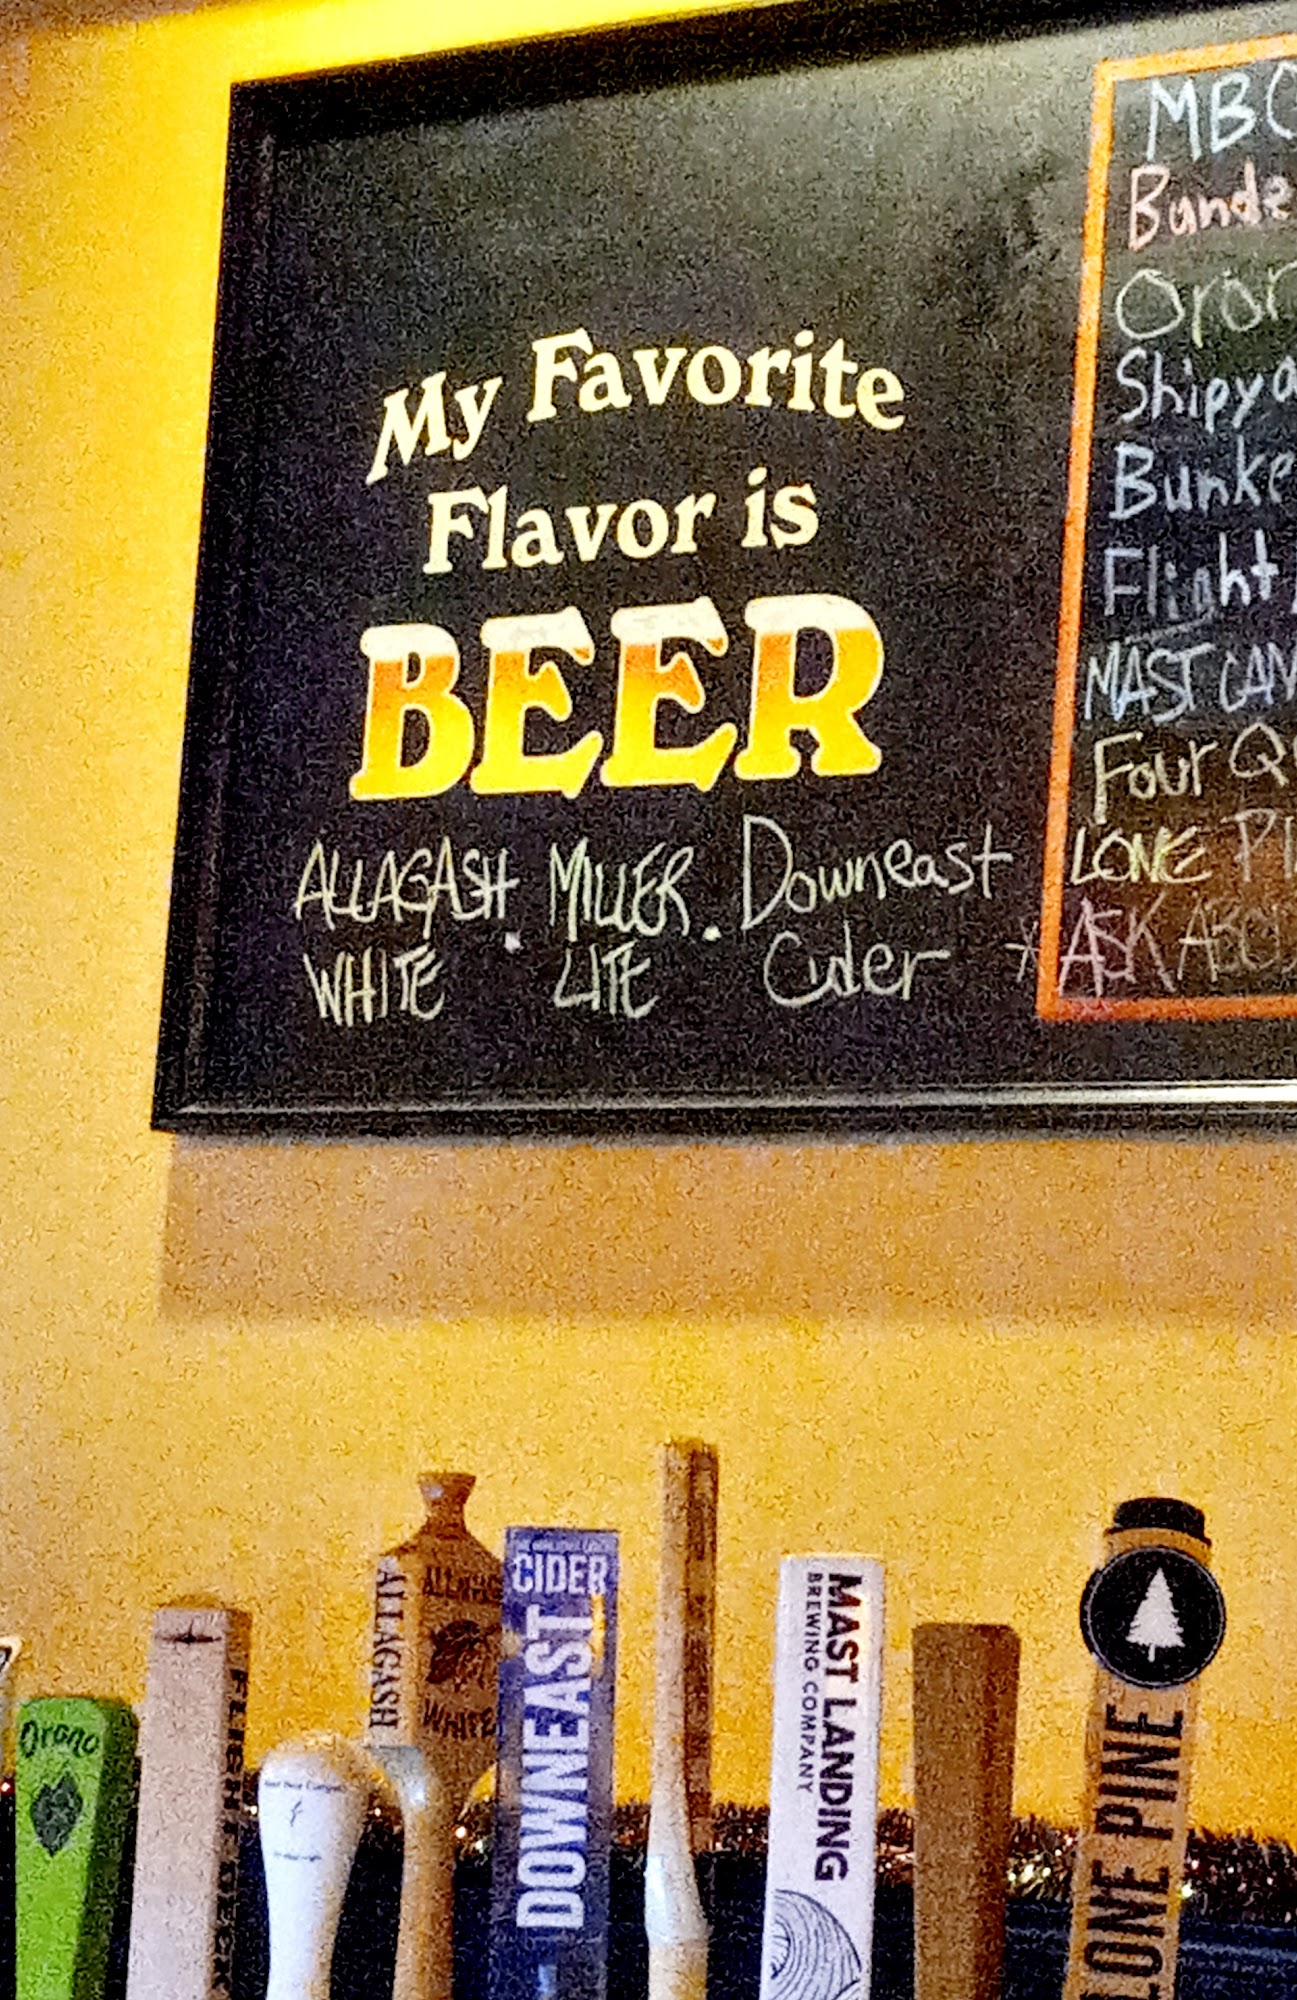 My Favorite
Flavor is
BEER
ALLAGASH . MILLER . Downeast
WHITE LITE Cider
MBC
Bunde
Oron
Shipya
Bunke
Flight
MAST CAN
Four Q
LONE PI
*ASK ABOU
Orono
FLIGHT DECK
ALLAGASH
ALLAGASH
WHITE
CIDER
DOWNEAST
MAST LANDING
BREWING COMPANY
LONE PINE